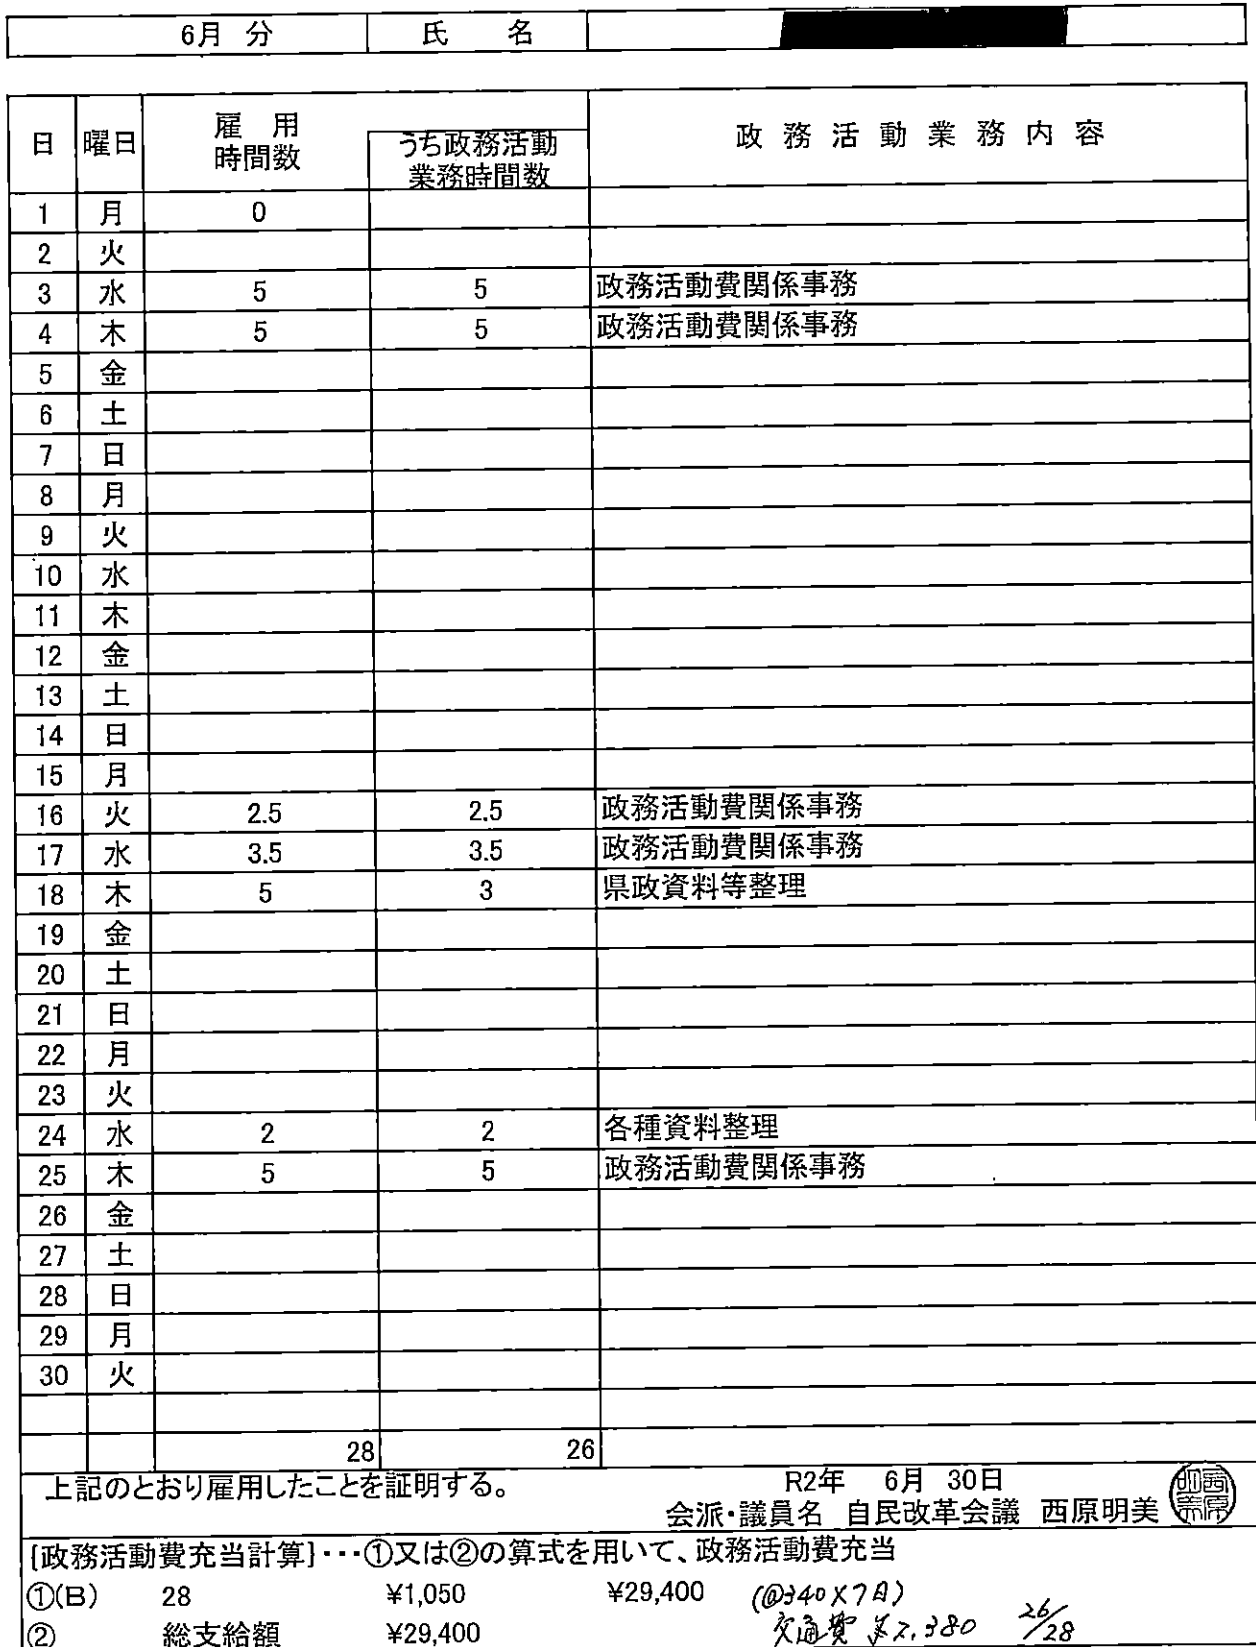 6月 分 氏 名
日 曜日 雇 用 時間数 うち政務活動 業務時間数 政 務 活 動 業 務 内 容
1 月 0
2 火
3 水 5 5 政務活動費関係事務
4 木 5 5 政務活動費関係事務
5 金
6 土
7 日
8 月
9 火
10 水
11 木
12 金
13 土
14 日
15 月
16 火 2.5 2.5 政務活動費関係事務
17 水 3.5 3.5 政務活動費関係事務
18 木 5 3 県政資料等整理
19 金
20 土
21 日
22 月
23 火
24 水 2 2 各種資料整理
25 木 5 5 政務活動費関係事務
26 金
27 土
28 日
29 月
30 火
28 26
上記のとおり雇用したことを証明する。
R2年 6月 30日
会派・議員名 自民改革会議 西原明美
[政務活動費充当計算]・・・①又は②の算式を用いて、政務活動費充当
①(B) 28 ¥1,050 ¥29,400 (@340×7日)
② 総支給額 ¥29,400 交通費 ¥2,380 26/28